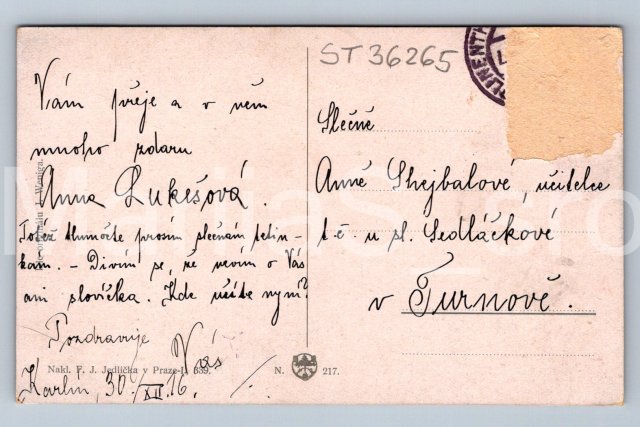 ST 36265
Vám přeje a v něm
mnoho zdaru
Anna Lukešová.
Totéž tlumočte prosím slečnám tetin-
kám. - Divím se, že nevím o Vás
ani slovíčka. Kde učíte nyní?
Pozdravuje Vás
Karlín, 30/XII 16.
Slečně
Anně Shejbalové, učitelce
t. č. u sl. Sedláčkové
v Turnově.
Nakl. F. J. Jedlička v Praze-I. 339.
N. 217.